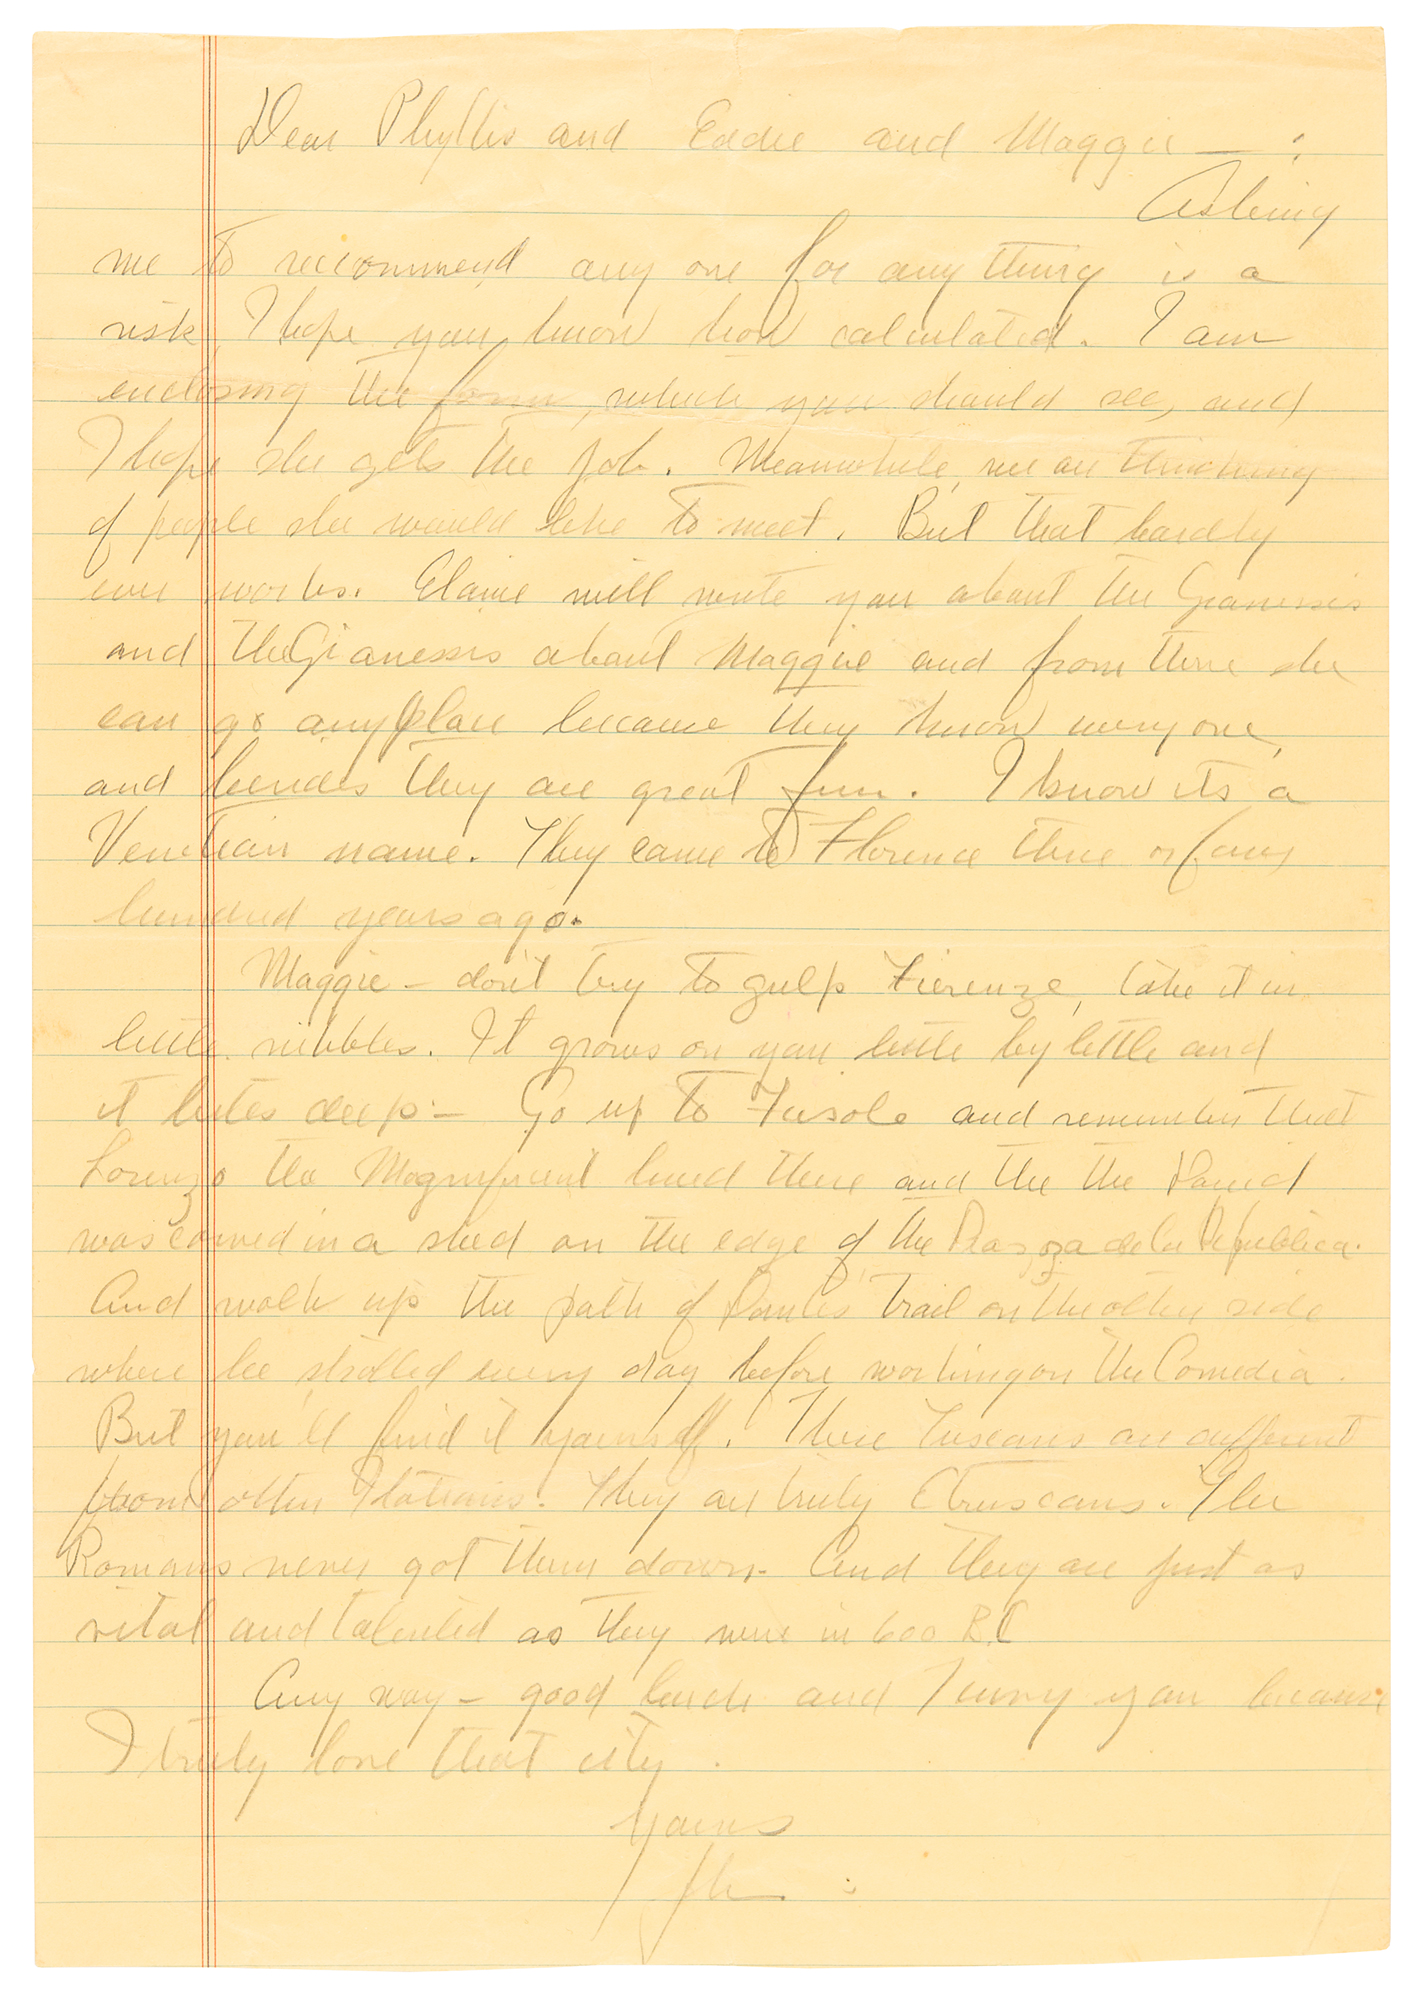 Dear Phyllis and Eddie and Maggie — :
Asking
me to recommend any one for any thing is a
risk, I hope you know how calculated. I am
enclosing the form, which you should see, and
I hope she gets the job. Meanwhile, we are thinking
of people she would like to meet. But that hardly
ever works. Elaine will write you about the Gianessis
and the Gianessis about Maggie and from there she
can go any place because they know every one,
and besides they are great fun. I know its a
Venetian name. They came to Florence three or four
hundred years ago.
Maggie — don't try to gulp Fierenze, take it in
little nibbles. It grows on you little by little and
it bites deep. — Go up to Fiesole and remember that
Lorenzo the Magnificent lived there and the the David
was carved in a shed on the edge of the Piazza de la Republica.
And walk up the path of Dantes trail on the other side
where he strolled every day before working on the Comedia.
But you'll find it yourself. These Tuscans are different
from other Italians. They are truly Etruscans. The
Romans never got them down. And they are just as
vital and talented as they were in 600 B.C
Any way — good luck and I envy you because
I truly love that city.
Yours